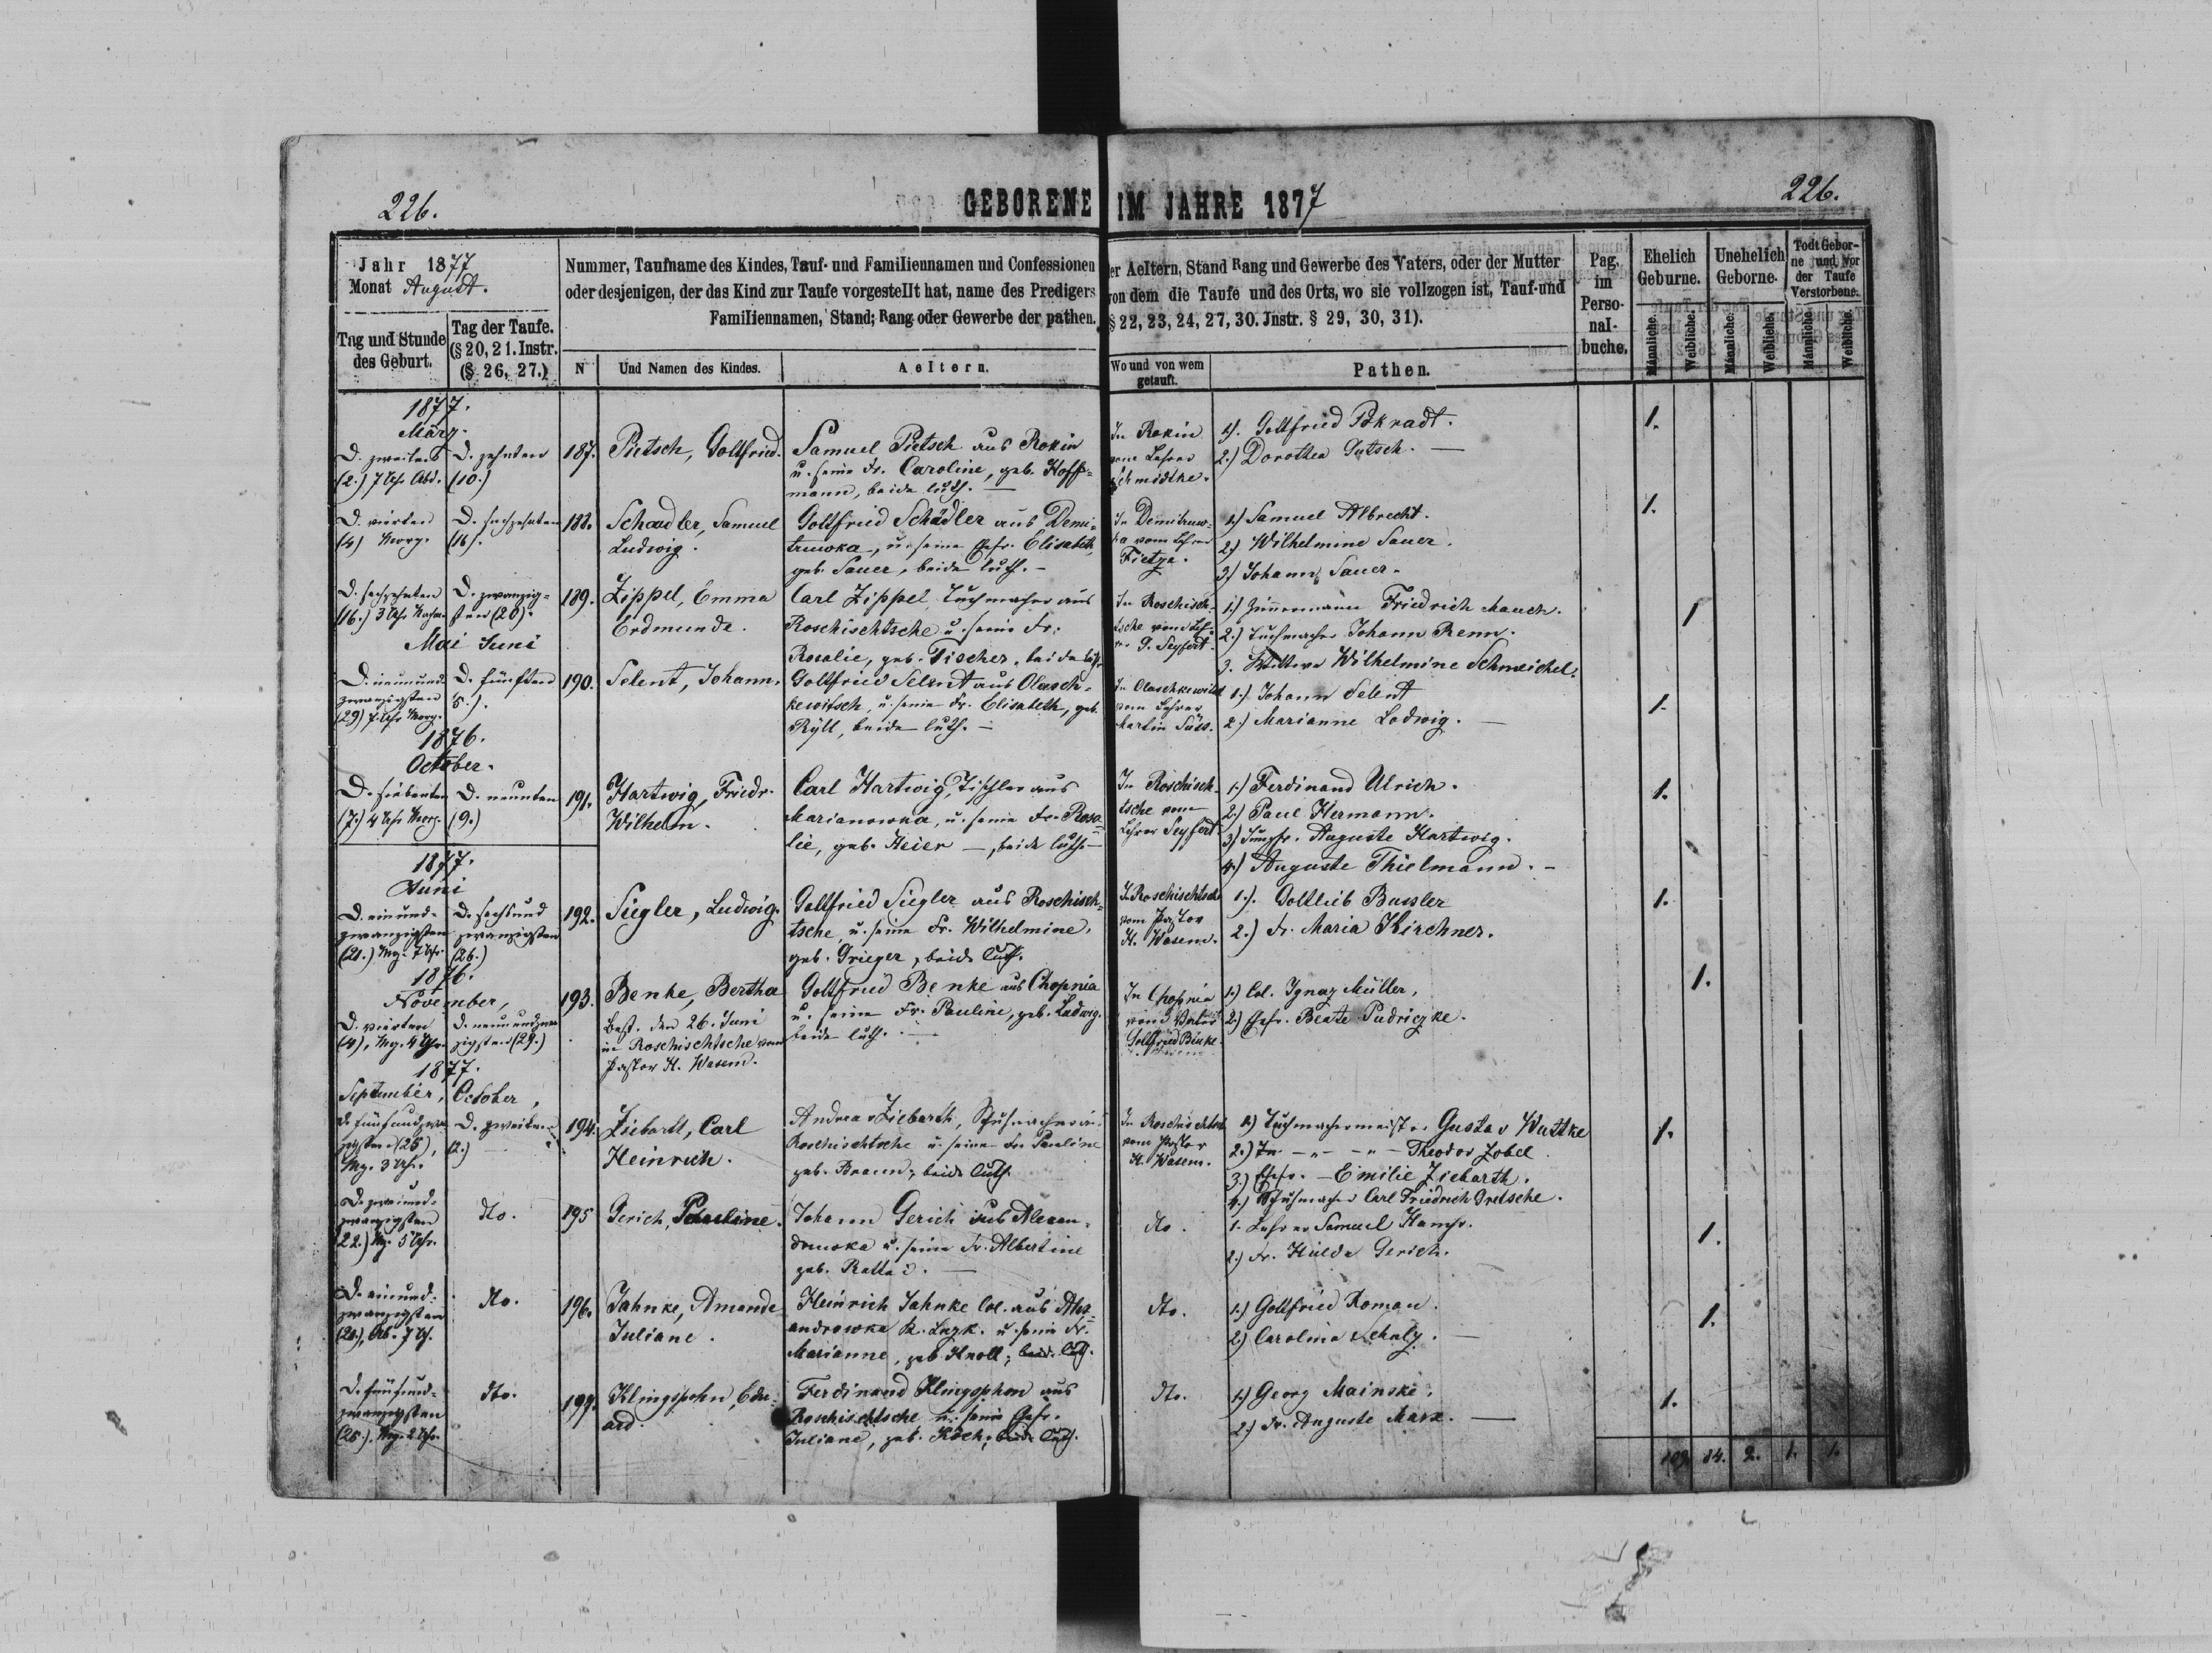 226.
GEBORENE IM JAHRE 1877
226.
Jahr 1877
Monat August.
Tag und Stunde
des Geburt.
Tag der Taufe.
(§ 20, 21. Instr.
(§ 26, 27.)
Nummer, Taufname des Kindes, Tauf- und Familiennamen und Confessionen
oder desjenigen, der das Kind zur Taufe vorgestellt hat, name des Predigers
Familiennamen, Stand; Rang oder Gewerbe der pathen.
N
Und Namen des Kindes.
Aeltern.
er Aeltern, Stand Rang und Gewerbe des Vaters, oder der Mutter
von dem die Taufe und des Orts, wo sie vollzogen ist, Tauf-und
§ 22, 23, 24, 27, 30. Jnstr. § 29, 30, 31).
Wo und von wem
getauft.
Pathen.
Pag.
im
Perso-
nal-
buche.
Ehelich
Geburne.
Unehelich
Geborne.
Todt Gebor-
ne und vor
der Taufe
Verstorbene.
Männliche.
Weibliche.
Männliche.
Weibliche.
Männliche.
Weibliche.
1877.
März.
D. zweiten
(2.) 7 Uhr Abd.
D. zehnten
(10.)
187.
Pietsch, Gottfried.
Samuel Pietsch aus Rokin
u. seine Fr. Caroline, geb. Hoff-
mann, beide luth. —
In Rokin
vom Lehrer
Schmidtke.
1). Gottfried Pokradt.
2.) Dorothea Gutsch. —
1.
D. vierten
(4) Morg.
D. sechzehnten
(16).
188.
Schaedler, Samuel
Ludwig.
Gottfried Schädler aus Demi-
truwka, u. seine Ehefr. Elisabeth,
geb. Sauer, beide luth. -
In Demitruw-
ka vom Lehrer
Fietze.
1.) Samuel Albrecht.
2.) Wilhelmine Sauer.
3.) Johann Sauer.
1.
D. sechzehnten
(16.) 3 Uhr Nachm.
D. zwanzig-
sten (20).
189.
Zippel, Emma
Erdmunde.
Carl Zippel Tuchmacher aus
Roschischtsche u. seine Fr.
Rosalie, geb. Fischer, beide luth.
In Roschisch-
tsche vom Leh-
rer G. Seyfert.
1.) Zimmermann Friedrich Mauch.
2.) Tuchmacher Johann Renn.
3. Wittwe Wilhelmine Schmeichel.
1
Mai Juni
D. neunund-
zwanzigsten
(29) 7 Uhr Morg.
D. fünften
5.).
190.
Selent, Johann.
Gottfried Selent aus Olasch-
kewitsch, u. seine Fr. Elisabeth, geb.
Ryll, beide luth. —
In Olaschkewitsch
vom Lehrer
Martin Süss.
1.) Johann Selent
2.) Marianne Ladwig. —
1.
1876.
October.
D. siebenten
(7.) 4 Uhr Morg.
D. neunten
(9.)
191.
Hartwig, Friedr.
Wilhelm.
Carl Hartwig, Tischler aus
Marianowka, u. seine Fr. Rosa-
lie, geb. Heier —, beide luth. —
In Roschisch-
tsche vom
Lehrer Seyfert.
1.) Ferdinand Ulrich.
2.) Paul Hermann.
3.) Jungfr. Auguste Hartwig.
4.) Auguste Thielmann. -
1.
1877.
Juni
D. einund-
zwanzigsten
(21.) Mg. 7 Uhr.
D. sechsund
zwanzigsten
(26.)
192.
Siegler, Ludwig.
Gottfried Siegler aus Roschisch-
tsche u. seine Fr. Wilhelmine,
geb. Grieger, beide luth.
I. Roschischtsche
vom Pastor
H. Wasem.
1.). Gottlieb Bussler
2.) Fr. Maria Kirchner.
1.
1876.
November,
D. vierten
(4), Mg. 4 Uhr.
D. neunundzwan
zigsten (29.)
193.
Benke, Bertha
best. den 26. Juni
in Roschischtsche vom
Pastor H. Wasem.
Gottfried Benke aus Chopnia
u. seine Fr. Pauline, geb. Ladwig.
beide luth. —
In Chopnia
vom Vater
Gottfried Binke.
1.) Col. Ignaz Müller,
2.) Ehefr. Beate Pudriczke.
1.
1877.
September, October,
D. fünfundzwan
zigsten (25),
Mg. 3 Uhr.
D. zweiten
(2.)
194.
Ziebart, Carl
Heinrich.
Andreas Ziebarth, Schuhmacher in
Roschischtsche u. seine Fr. Pauline
geb. Braun, beide luth.
In Roschischtsche
vom Pastor
H. Wasem.
1.) Tuchmachermeister Gustav Wuttke
2.) In - „ - „ - Theodor Zobel
3.) Ehefr. — Emilie Ziebarth.
4.) Schuhmacher Carl Friedrich Dretsche.
1.
D. zweiund-
zwanzigsten
22.) Mg. 5 Uhr.
dto.
195
Gerich, Pauline.
Johann Gerich aus Alexan-
druwka u. seine Fr. Albertine
geb. Rattai. —
dto.
1. Lehrer Samuel Hampf.
2.) Fr. Hulda Gerich.
1.
D. einund-
zwanzigsten
(21.), Ab. 7 Uh.
dto.
196.
Jahnke, Amande
Juliane.
Heinrich Jahnke Col. aus Alex-
androwka K. Luzk. u. seine Fr.
Marianne, geb. Knoll; beid. luth.
dto.
1.) Gottfried Roman.
2.) Carolina Schulz. —
1.
D. fünfund-
zwanzigsten
(25.). Mg. 2 Uhr.
dto.
197.
Klingspohn, Edu-
ard.
Ferdinand Klingsphon aus
Roschischtsche u. seine Ehefr.
Juliane, geb. Koch, beide luth.
dto.
1.) Georg Mainski.
2.) Fr. Auguste Marx. —
1.
109. 84. 2. 1. 1.